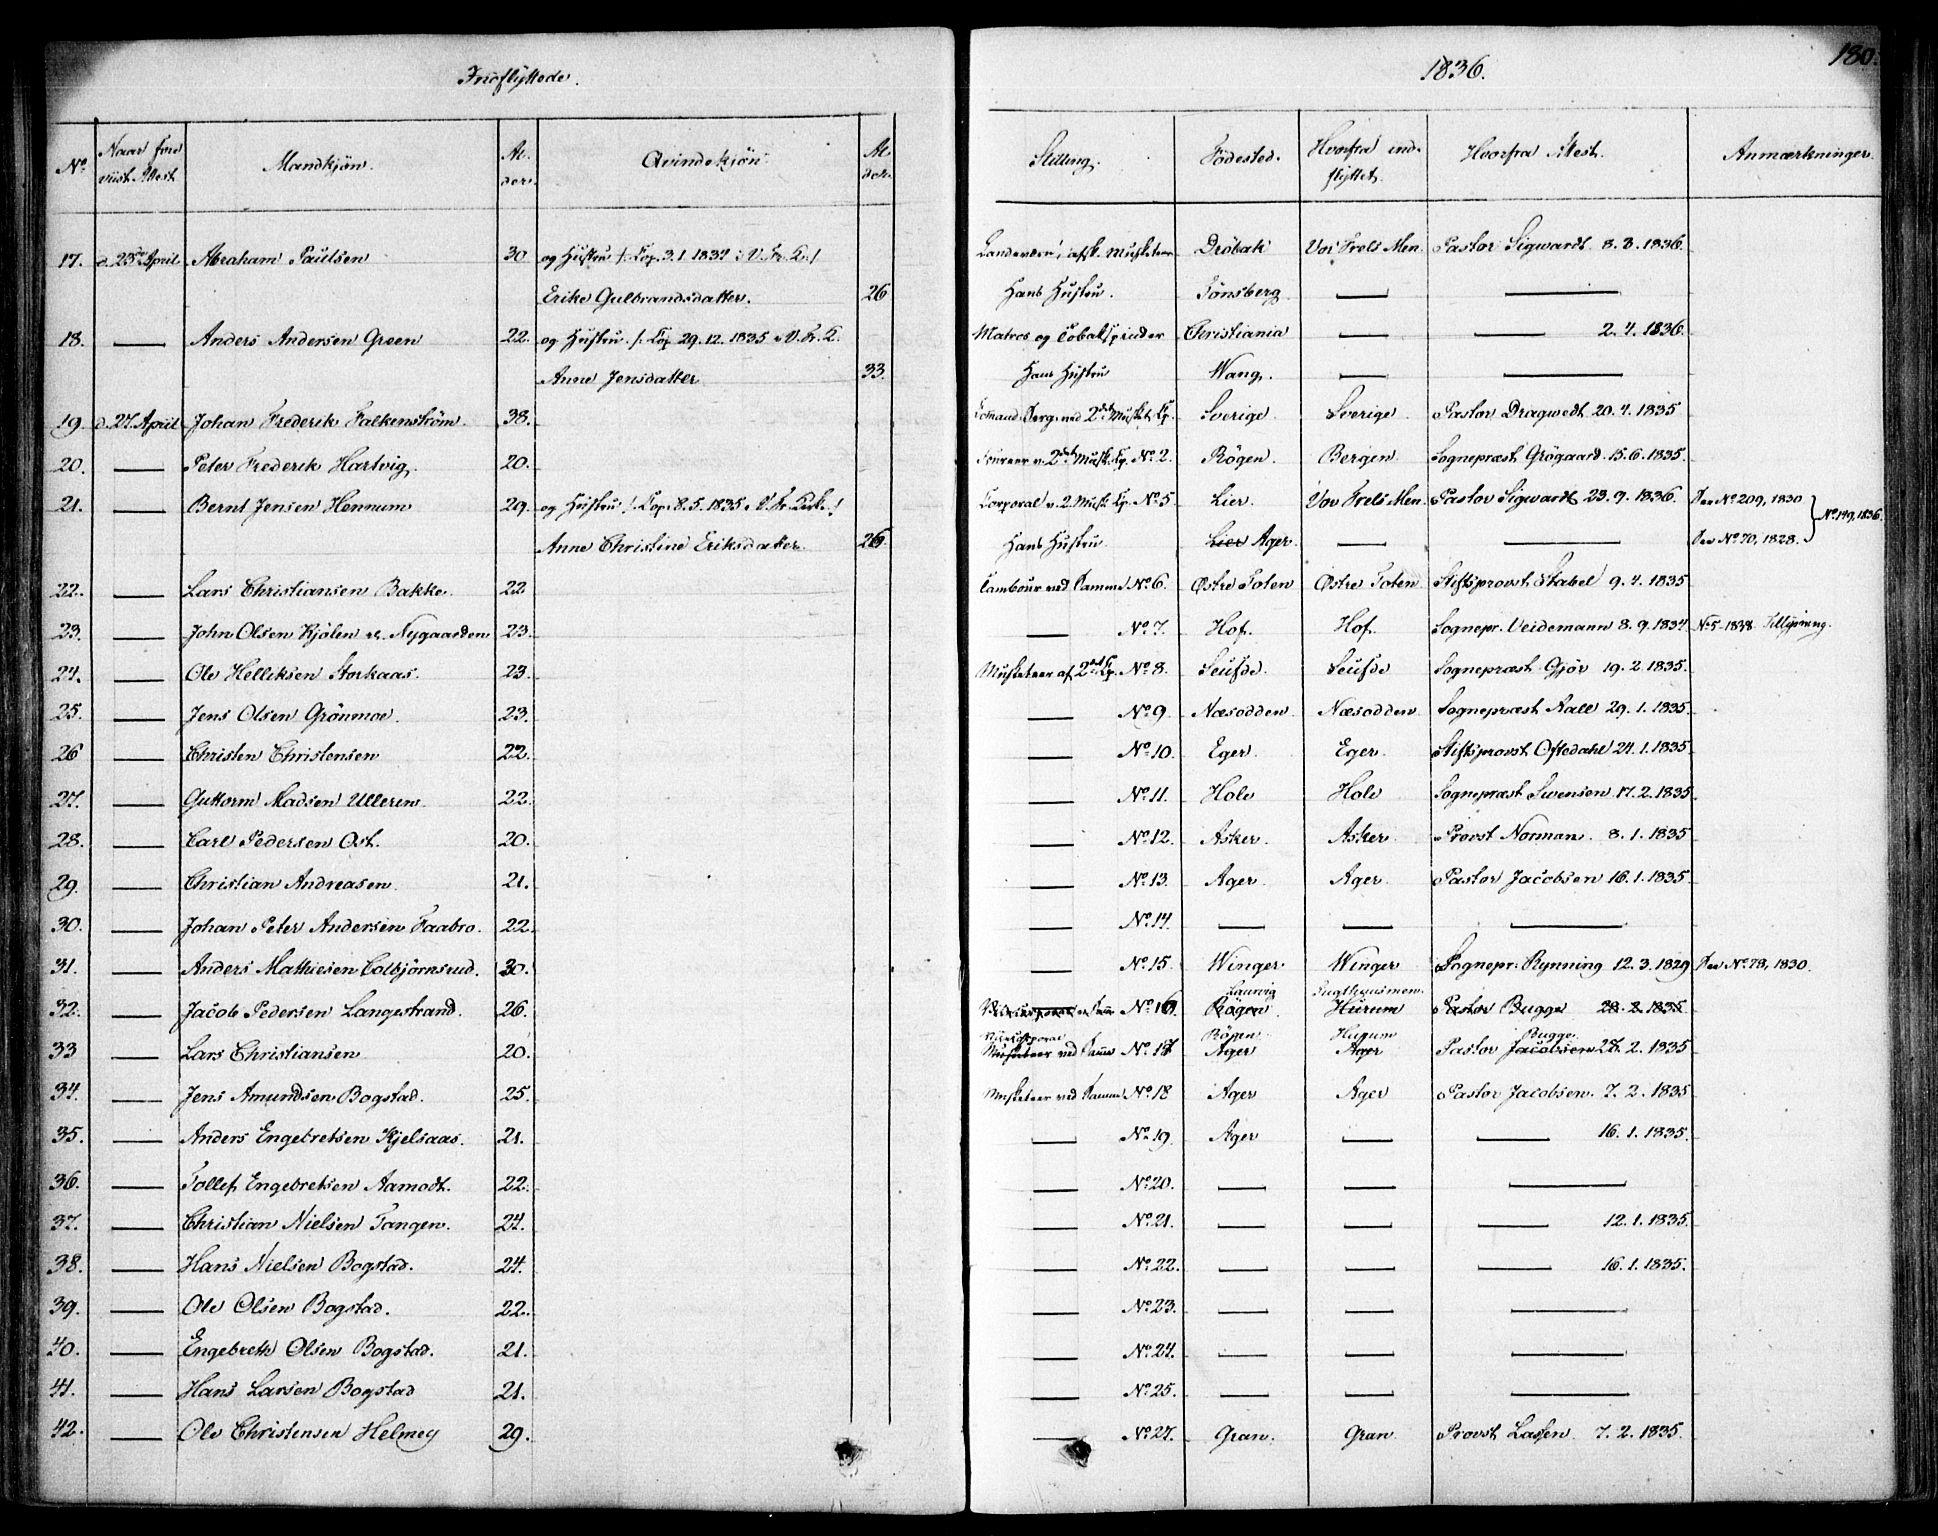 Indflyttede.
1836.
180.
No Naar fore viist Attest Mandkjøn. Al. der. Qvindekjøn Al. der. Stilling. Fødested. Hvorfra ind. flyttet. Hvorfra Attest. Anmærkninger.
17. d. 23de April Abraham Paulsen 30 og Hustru /: Cop. 3.1.1832 i V. Fr. K. / afsk. Musketeer Drøbak Vor Frels Men. Pastor Sigwardt 8.3.1836.
Erike Gulbrandsdatter. 26 Hans Hustru. Tønsberg. — —
18. — Anders Andersen Green 22. og Hustru /: Cop. 29.12.1835 i V. Fr. K. Matros og Christiania — — 2.4.1836.
Anne Jensdatter 33. Hans Hustru Wang. — —
19. d. 27 April Johan Frederik Falkenstrøm. 38. Comand. Serg. ved 2det Musket. Cp. Sverige Sverige Pastor Dragwedt 20.4.1835
20. — Peter Frederik Hartvig. 20. Foureer v. 2det Musk. Cp. No 2. Røgen. Bergen. Sognepræst Grøgaard 15.6.1835.
21. — Bernt Jensen Hennum 29. og Hustru /: Cop. 8.5.1835 i V. Fr. Kirke / Corporal v. 2. Musk. Cp. No 5 Lier. Vor Frels Men. Pastor Sigwardt 23.9.1836. See No 209, 1830
No 149, 1836.
Anne Christine Eriksdatter. 26. Hans Hustru. Lier Ager. — — See No 70, 1828.
22. — Lars Christiansen Bakke. 22 Tambour ved Samme No 6. Østre Toten Østre Toten Stiftsprovst Stabel 9.4.1835
23. — John Olsen Kjølen el. Nygaarden 23. — No 7. Hof. Hof. Sognepr. Veidemann 8.9.1834 No 5 1838 Tillysning.
24. — Ole Helliksen Storkaas. 23. Musketeer af 2det Cp. No 8. Seufde. Seufde Sognepræst Gjør 19.2.1835.
25. — Jens Olsen Grønmoe. 23. — No 9 Næsodden. Næsodden Sognepræst Aall 29.1.1835.
26 — Christen Christensen 22. — No 10. Eger. Eger. Stiftsprovst Oftedahl 24.1.1835
27. — Guttorm Madsen Ulleren 22. — No 11. Hole Hole Sognepræst Svensen 17.2.1835
28. — Carl Pedersen Ost. 20. — No 12. Asker. Asker Provst Norman. 8.1.1835
29. — Christian Andreasen. 21. — No 13. Ager. Ager. Pastor Jacobsen 16.1.1835
30. — Johan Peter Andersen Faabro. 22. — No 14. — — —
31. — Anders Mathiesen Colbjørnsrud. 30. — No 15 Winger Winger Sognepr. Rynning 12.3.1829 See No 78, 1830.
Laurvig Tugthuusmen.
32. — Jacob Pedersen Langestrand. 26. No 16 Røgen Hurum Pastor Bugge 28.2.1835
Vicecorporal Røgen Hurum Bugge.
33 — Lars Christiansen 20. Musketeer ved Samme No 17 Ager Ager Pastor Jacobsen 28.2.1835
34. — Jens Amundsen Bogstad. 25. Musketeer ved Samme No 18 Ager Ager Pastor Jacobsen. 7.2.1835
35. — Anders Engebretsen Kjelsaas. 21. — No 19. Ager — — 16.1.1835.
36. — Tollef Engebretsen Aamodt. 22. — No 20. — — —
37. — Christian Nielsen Tangen. 24. — No 21. — — — 12.1.1835.
38. — Hans Nielsen Bogstad. 24. — No 22. — — — 16.1.1835.
39. — Ole Olsen Bogstad. 22. — No 23. — — —
40. — Engebreth Olsen Bogstad. 21. — No 24. — — —
41. — Hans Larsen Bogstad 21. — No 25. — — —
42. — Ole Christensen Helmey 29. — No 27. Gran. Gran Provst Lassen 7.2.1835.